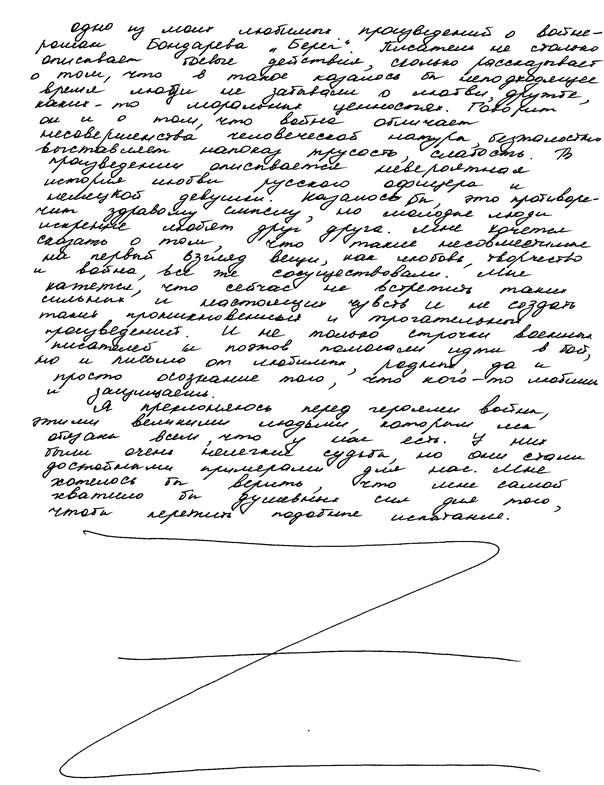 Одно из моих любимых произведений о войне -
роман Бондарева „Берег". Писатель не столько
описывает боевые действия, сколько рассказывает
о том, что в такое казалось бы неподходящее
время люди не забывали о любви, дружбе,
каких-то моральных ценностях. Говорит
он и о том, что война обличает
несовершенства человеческой натуры, безжалостно
выставляет напоказ трусость, слабость. В
произведении описывается невероятная
история любви русского офицера и
немецкой девушки. Казалось бы, это противоре-
чит здравому смыслу, но молодые люди
искренне любят друг друга. Мне хочется
сказать о том, что такие несовместимые
на первый взгляд вещи, как любовь, творчество
и война, все же сосуществовали. Мне
кажется, что сейчас не встретить таких
сильных и настоящих чувств и не создать
таких проникновенных и трогательных
произведений. И не только строчки военных
писателей и поэтов помогали идти в бой,
но и письма от любимых, родных, да и
просто осознание того, что кого-то любишь
и защищаешь.
Я преклоняюсь перед героями войны,
этими великими людьми, которым мы
обязаны всем, что у нас есть. У них
были очень нелегкие судьбы, но они стали
достойными примерами для нас. Мне
хотелось бы верить, что мне самой
хватило бы душевных сил для того,
чтобы пережить подобные испытание.